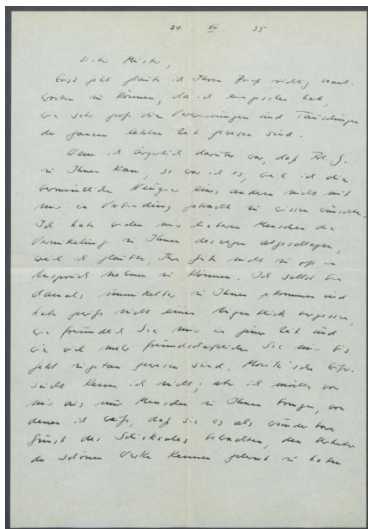 24 VI 35
Erst jetzt glaube ich Ihren Brief richtig beant-
worten zu können, da ich eingesehen habe,
wie sehr groß die Verwirrungen und Täuschungen
der ganzen letzten Zeit gewesen sind.
Wenn ich ärgerlich darüber war, daß
zu Ihnen kam, so war ich es, weil ich die
vermeintliche eines anderen nicht mit
mir in Verbindung gebracht zu wissen wünschte.
Ich habe vielen mir Menschen die
Vermittlung zu Ihnen deswegen abgeschlagen,
weil ich glaubte, Ihre Güte nicht zu oft in
Anspruch nehmen zu können. Ich selbst bin
damals zu Ihnen gekommen und
habe gewiß nicht einen Augenblick vergessen,
wie freundlich Sie mir in jener Zeit und
wie viel mehr freundschaftlicher Sie mir bis
jetzt gewesen sind.
kenne ich nicht; aber ich möchte von
mir aus nur Menschen zu Ihnen bringen, von
denen ich weiß, daß sie es als wunderbare
Gunst des Schicksales betrachten, den
der schönen Werke kennen gelernt zu haben